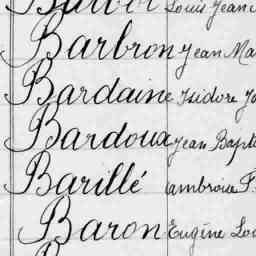 Louis Jean
Barbron Jean Ma
Bardaine Isidore Jo
Bardoux Jean Bapt
Barillé ambroise F.
Baron Eugène Lou